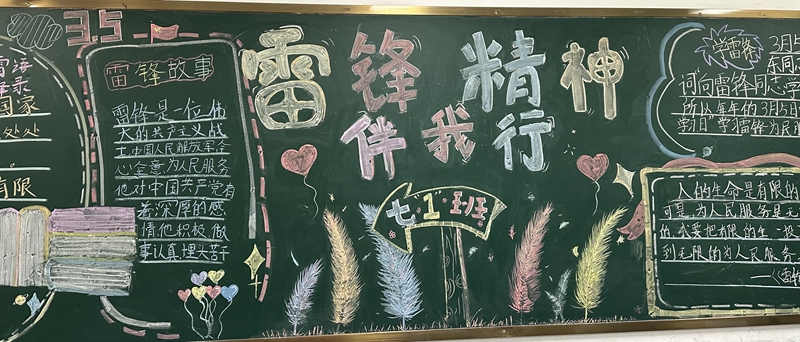 3.5
雷锋精神
伴我行
七·1·班
国家
处处
有限
雷锋故事
雷锋是一位伟
大的共产主义战
士,中国人民解放军全
心全意为人民服务
他对中国共产党有
着深厚的感
情他积极做
事认真埋头苦干
学雷锋
3月5
东同志
词向雷锋同志学
所以每年的3月5日
学习雷锋为民
人的生命是有限的
可是,为人民服务是无
我要把有限的生
到无限的为人民服务
——《雷锋